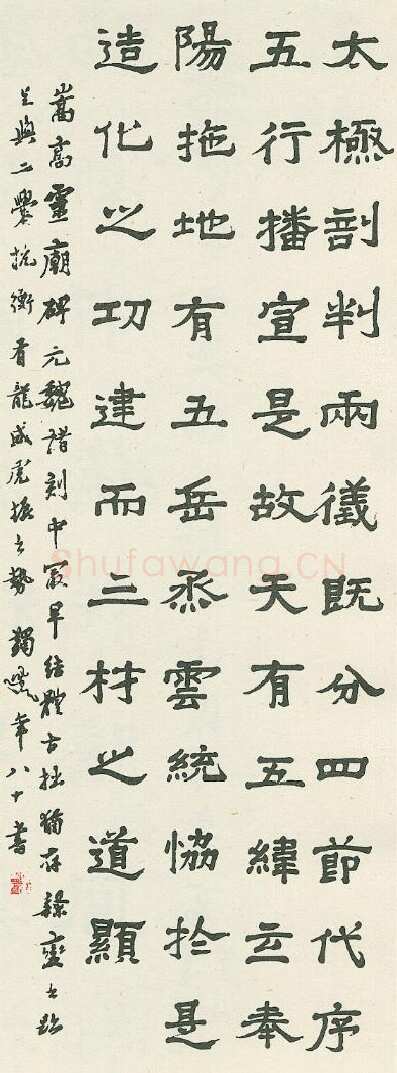 太極剖判兩儀既分四節代序
五行播宣是故天有五緯主奉
陽施地有五岳烝雲統協於是
造化之功建而三材之道顯
嵩高靈廟碑元魏諸刻中最早結體古拙猶存隸變之跡
足與二爨抗衡有龍威虎振之勢 獨 年八十書
Shufawang.CN